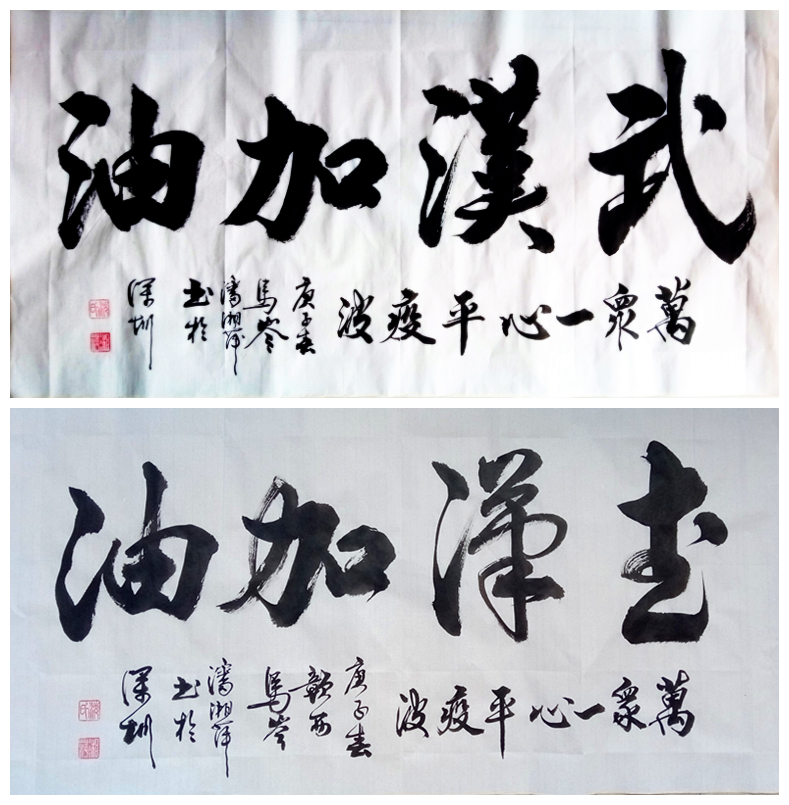 武漢加油
萬衆一心平疫波
庚子春
馬岑
潘湘萍
书於
深圳
武漢加油
萬衆一心平疫波
庚子春
贛西
馬岑
潘湘萍
书於
深圳